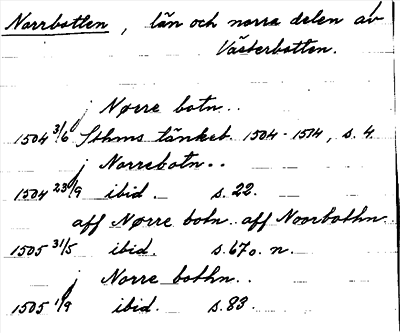 Norrbotten, län och norra delen av
Västerbotten.
j Nørre botn..
1504 3/6 Sthms tänkeb. 1504-1514, s. 4.
j Norrebotn..
1504 23/9 ibid. s. 22.
aff Nørre botn.. aff Noorbothn
1505 31/5 ibid. s. 67 o. n.
j Norre bothn..
1505 1/9 ibid. s. 83.